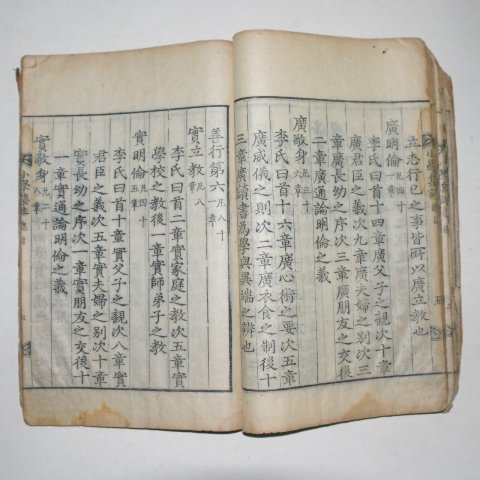 立志行已之事皆所以廣立教也
廣明倫凡四十一章
李氏曰首十四章廣父子之親次十章
廣君臣之義次九章廣夫婦之別次三
章廣長幼之序次三章廣朋友之交後
二章廣通論明倫之義
廣敬身
李氏曰首十六章廣心術之要次五章
廣威儀之則次二章廣衣食之制後十
三章廣讀書為學與異端之辨也
善行第六凡八十一章
實立教凡八章
李氏曰首二章實家庭之教次五章實
學校之教後一章實師弟子之教
實明倫凡四十五章
李氏曰首十章實父子之親次八章實
君臣之義次五章實夫婦之別次十章
實長幼之序次一章實朋友之交後十
一章實通論明倫之義
實敬身凡二十八章